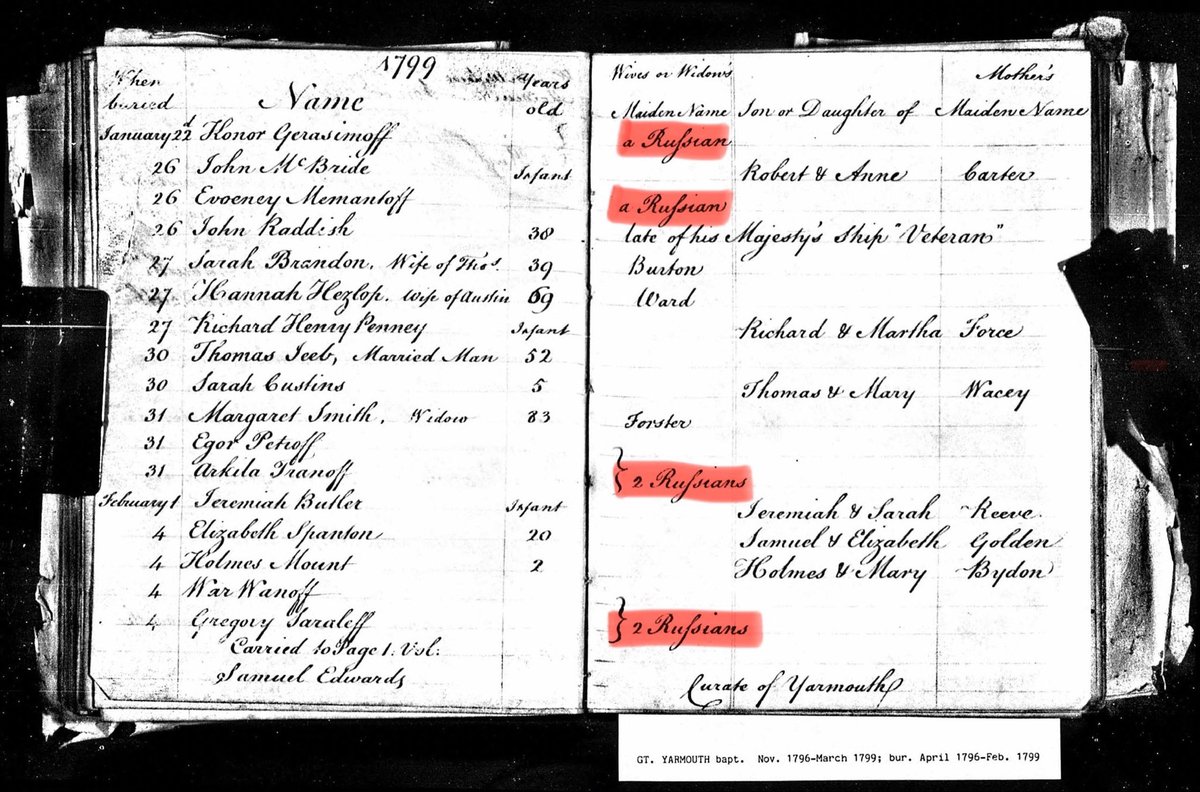 1799
When buried Name Years old Wives or Widows Maiden Name Son or Daughter of Mother's Maiden Name
January 22d Honor Gerasimoff a Russian
26 John McBride Infant Robert & Anne Carter
26 Evoeney Memantoff a Russian
26 John Raddish 38 late of his Majesty's Ship "Veteran"
27 Sarah Brandon, Wife of Thos. 39 Burton
27 Hannah Hezlop. Wife of Austin 69 Ward
27 Richard Henry Penney Infant Richard & Martha Force
30 Thomas Jeeb, Married Man 52
30 Sarah Custins 5 Thomas & Mary Wacey
31 Margaret Smith, Widow 83 Forster
31 Egor Petroff
31 Arkila Ivanoff } 2 Russians
February 1 Jeremiah Butler Infant Jeremiah & Sarah Reeve.
4 Elizabeth Spanton 20 Samuel & Elizabeth Golden
4 Holmes Mount 2 Holmes & Mary Bydon
4 War Wanoff
4 Gregory Saraleff } 2 Russians
Carried to Page 1. Vol:
Samuel Edwards Curate of Yarmouth
GT. YARMOUTH bapt. Nov. 1796-March 1799; bur. April 1796-Feb. 1799